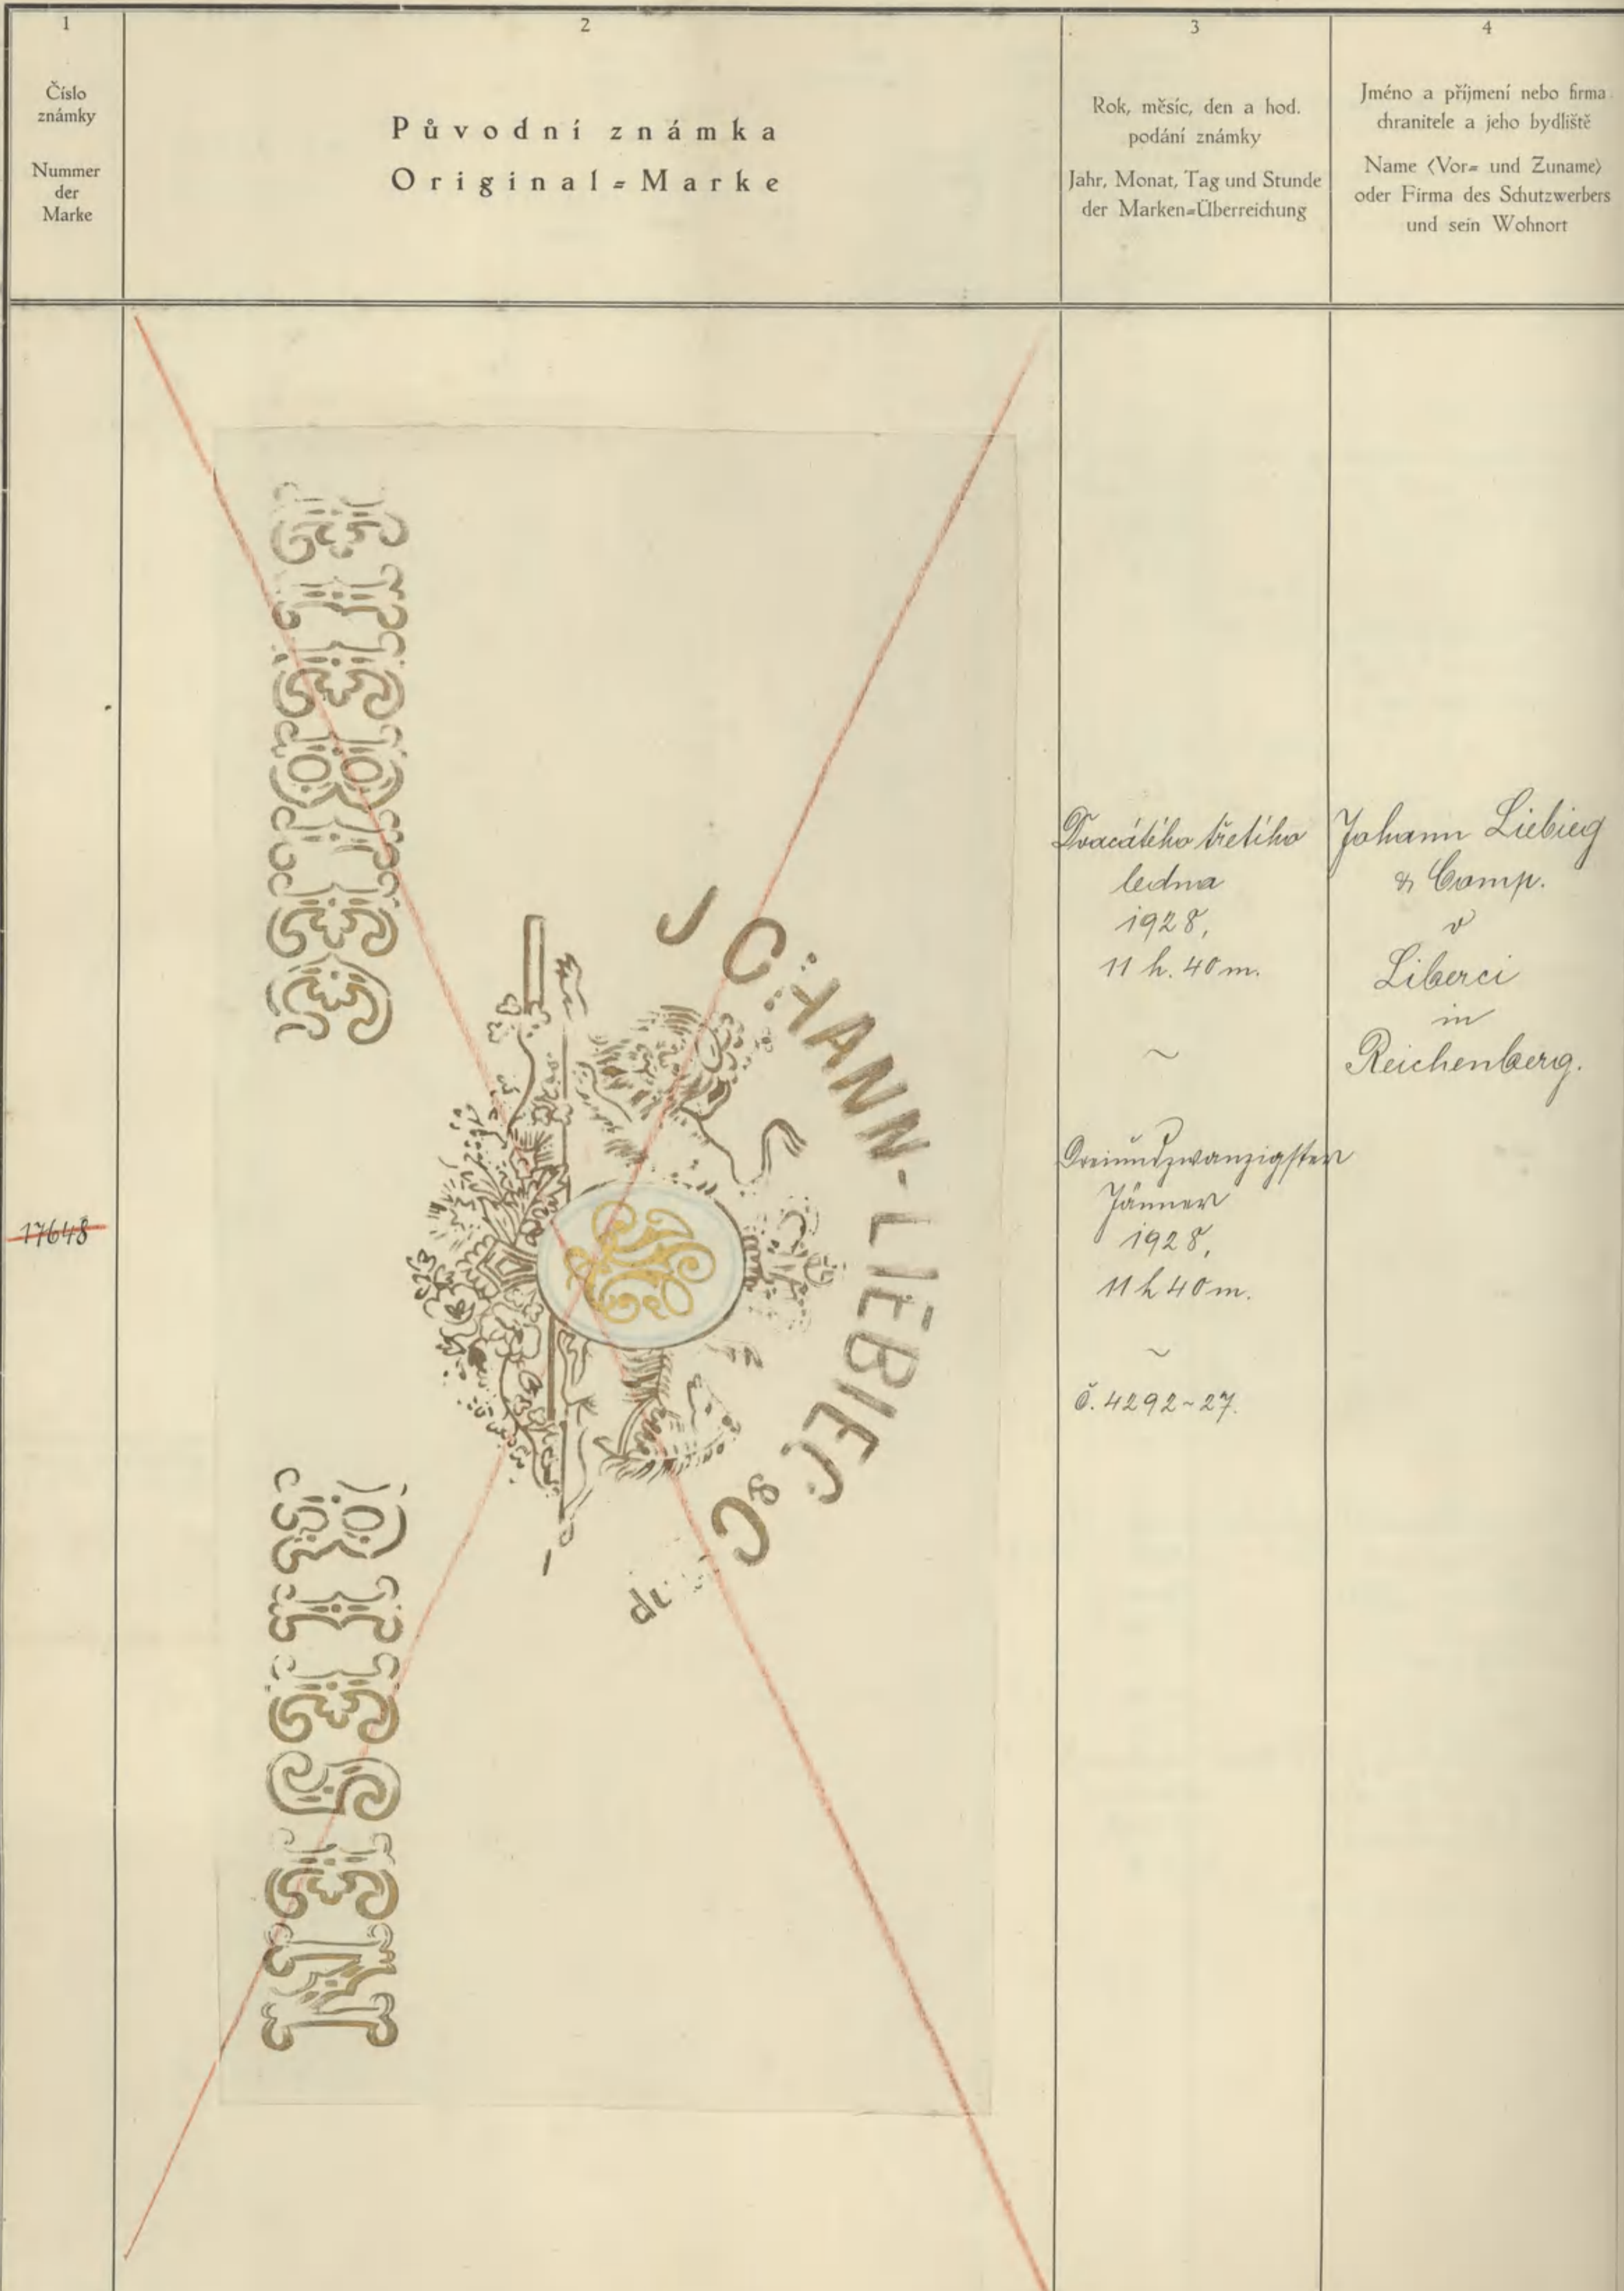 1
Číslo
známky
Nummer
der
Marke
2
Původní známka
Original=Marke
3
Rok, měsíc, den a hod.
podání známky
Jahr, Monat, Tag und Stunde
der Marken=Überreichung
4
Jméno a příjmení nebo firma
chranitele a jeho bydliště
Name (Vor= und Zuname)
oder Firma des Schutzwerbers
und sein Wohnort
17648
JOHANN-LIEBIEG
& C
Dvacátého třetího
ledna
1928,
11 h. 40 m.
~
Dreiundzwanzigster
Jänner
1928,
11 h 40 m.
~
č. 4292~27.
Johann Liebieg
& Comp.
v
Liberci
in
Reichenberg.